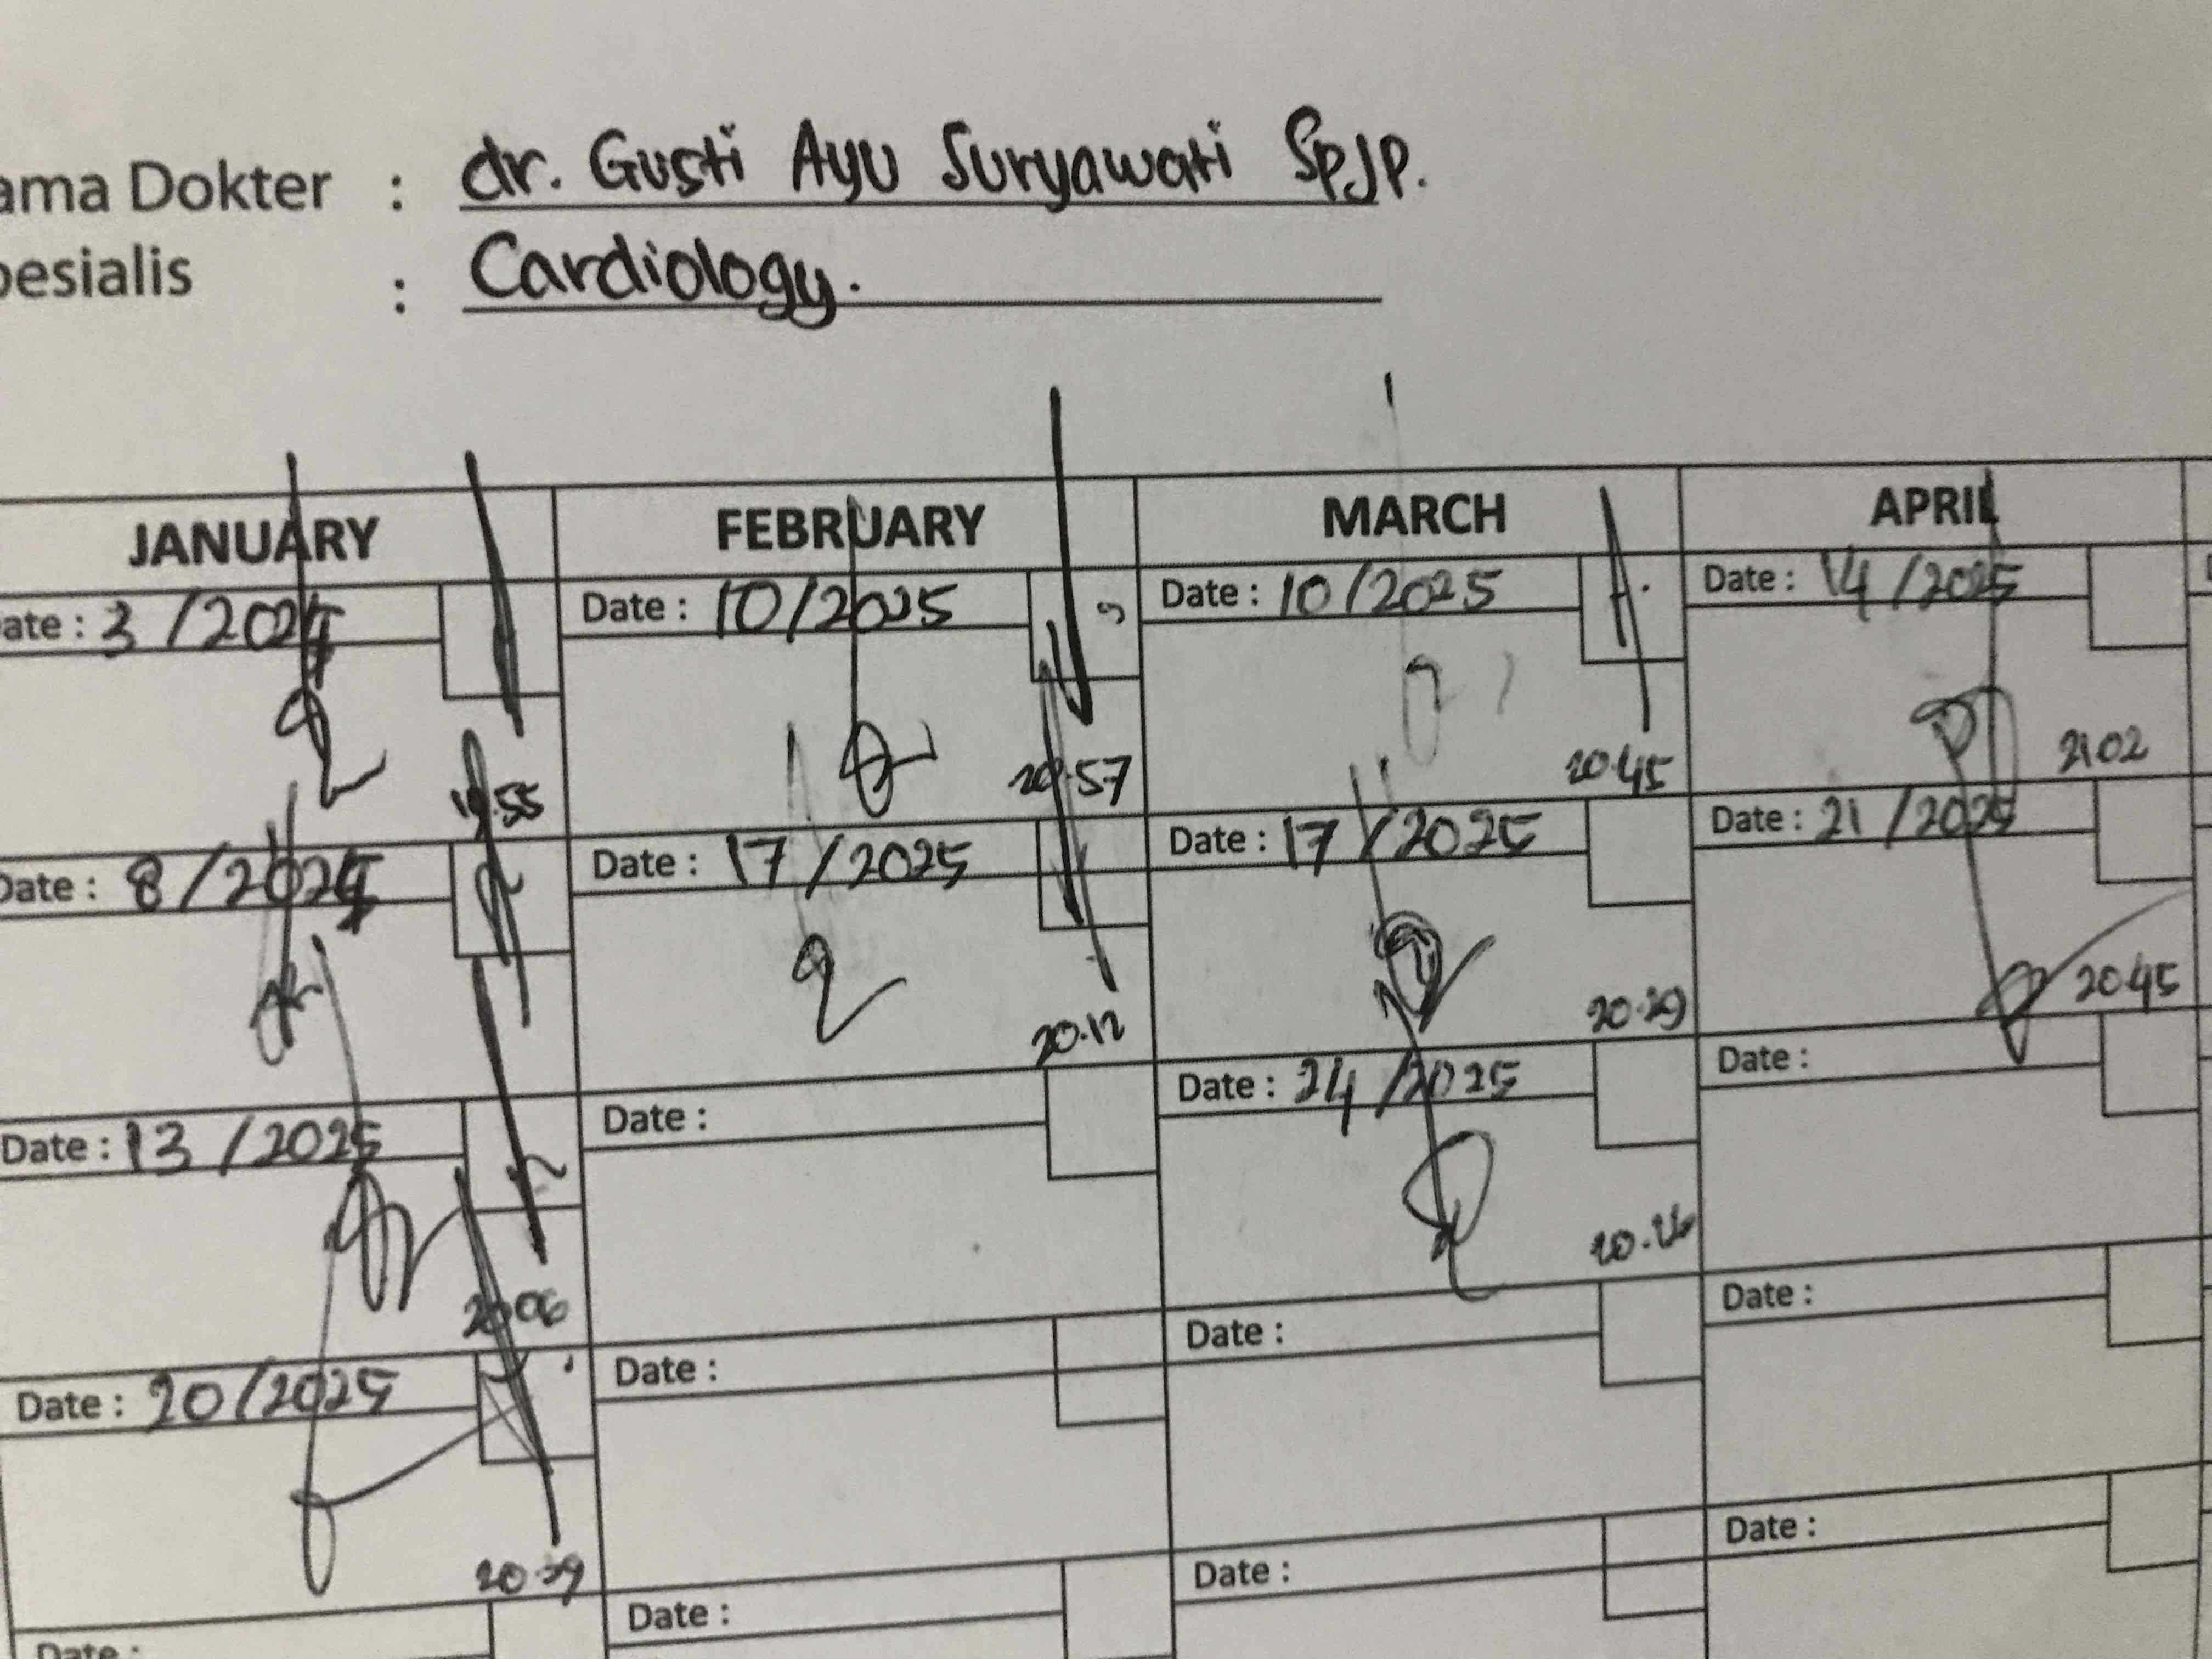 ama Dokter : dr. Gusti Ayu Suryawati SpJP.
pesialis : Cardiology.
JANUARY FEBRUARY MARCH APRIL
ate : 3 /2024 Date : 10/2025 Date : 10/2025 Date : 14/2025
19.55 20.57 20.45 21.02
Date : 8/2024 Date : 17/2025 Date : 17/2025 Date : 21/2025
20.12 20.29 20.45
Date : 13/2025 Date : Date : 24/2025 Date :
20.06 20.26
Date : 20/2025 Date : Date : Date :
20.29
Date : Date : Date : Date :